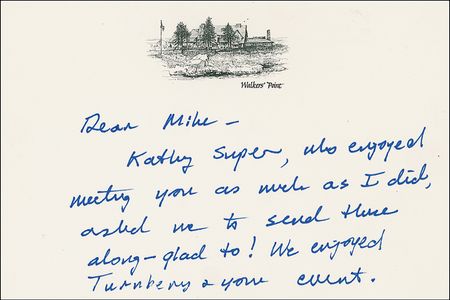 Walkers' Point
Dear Mike –
Kathy Super, who enjoyed
meeting you as much as I did,
asked me to send these
along – glad to! We enjoyed
Turnberry & your event.